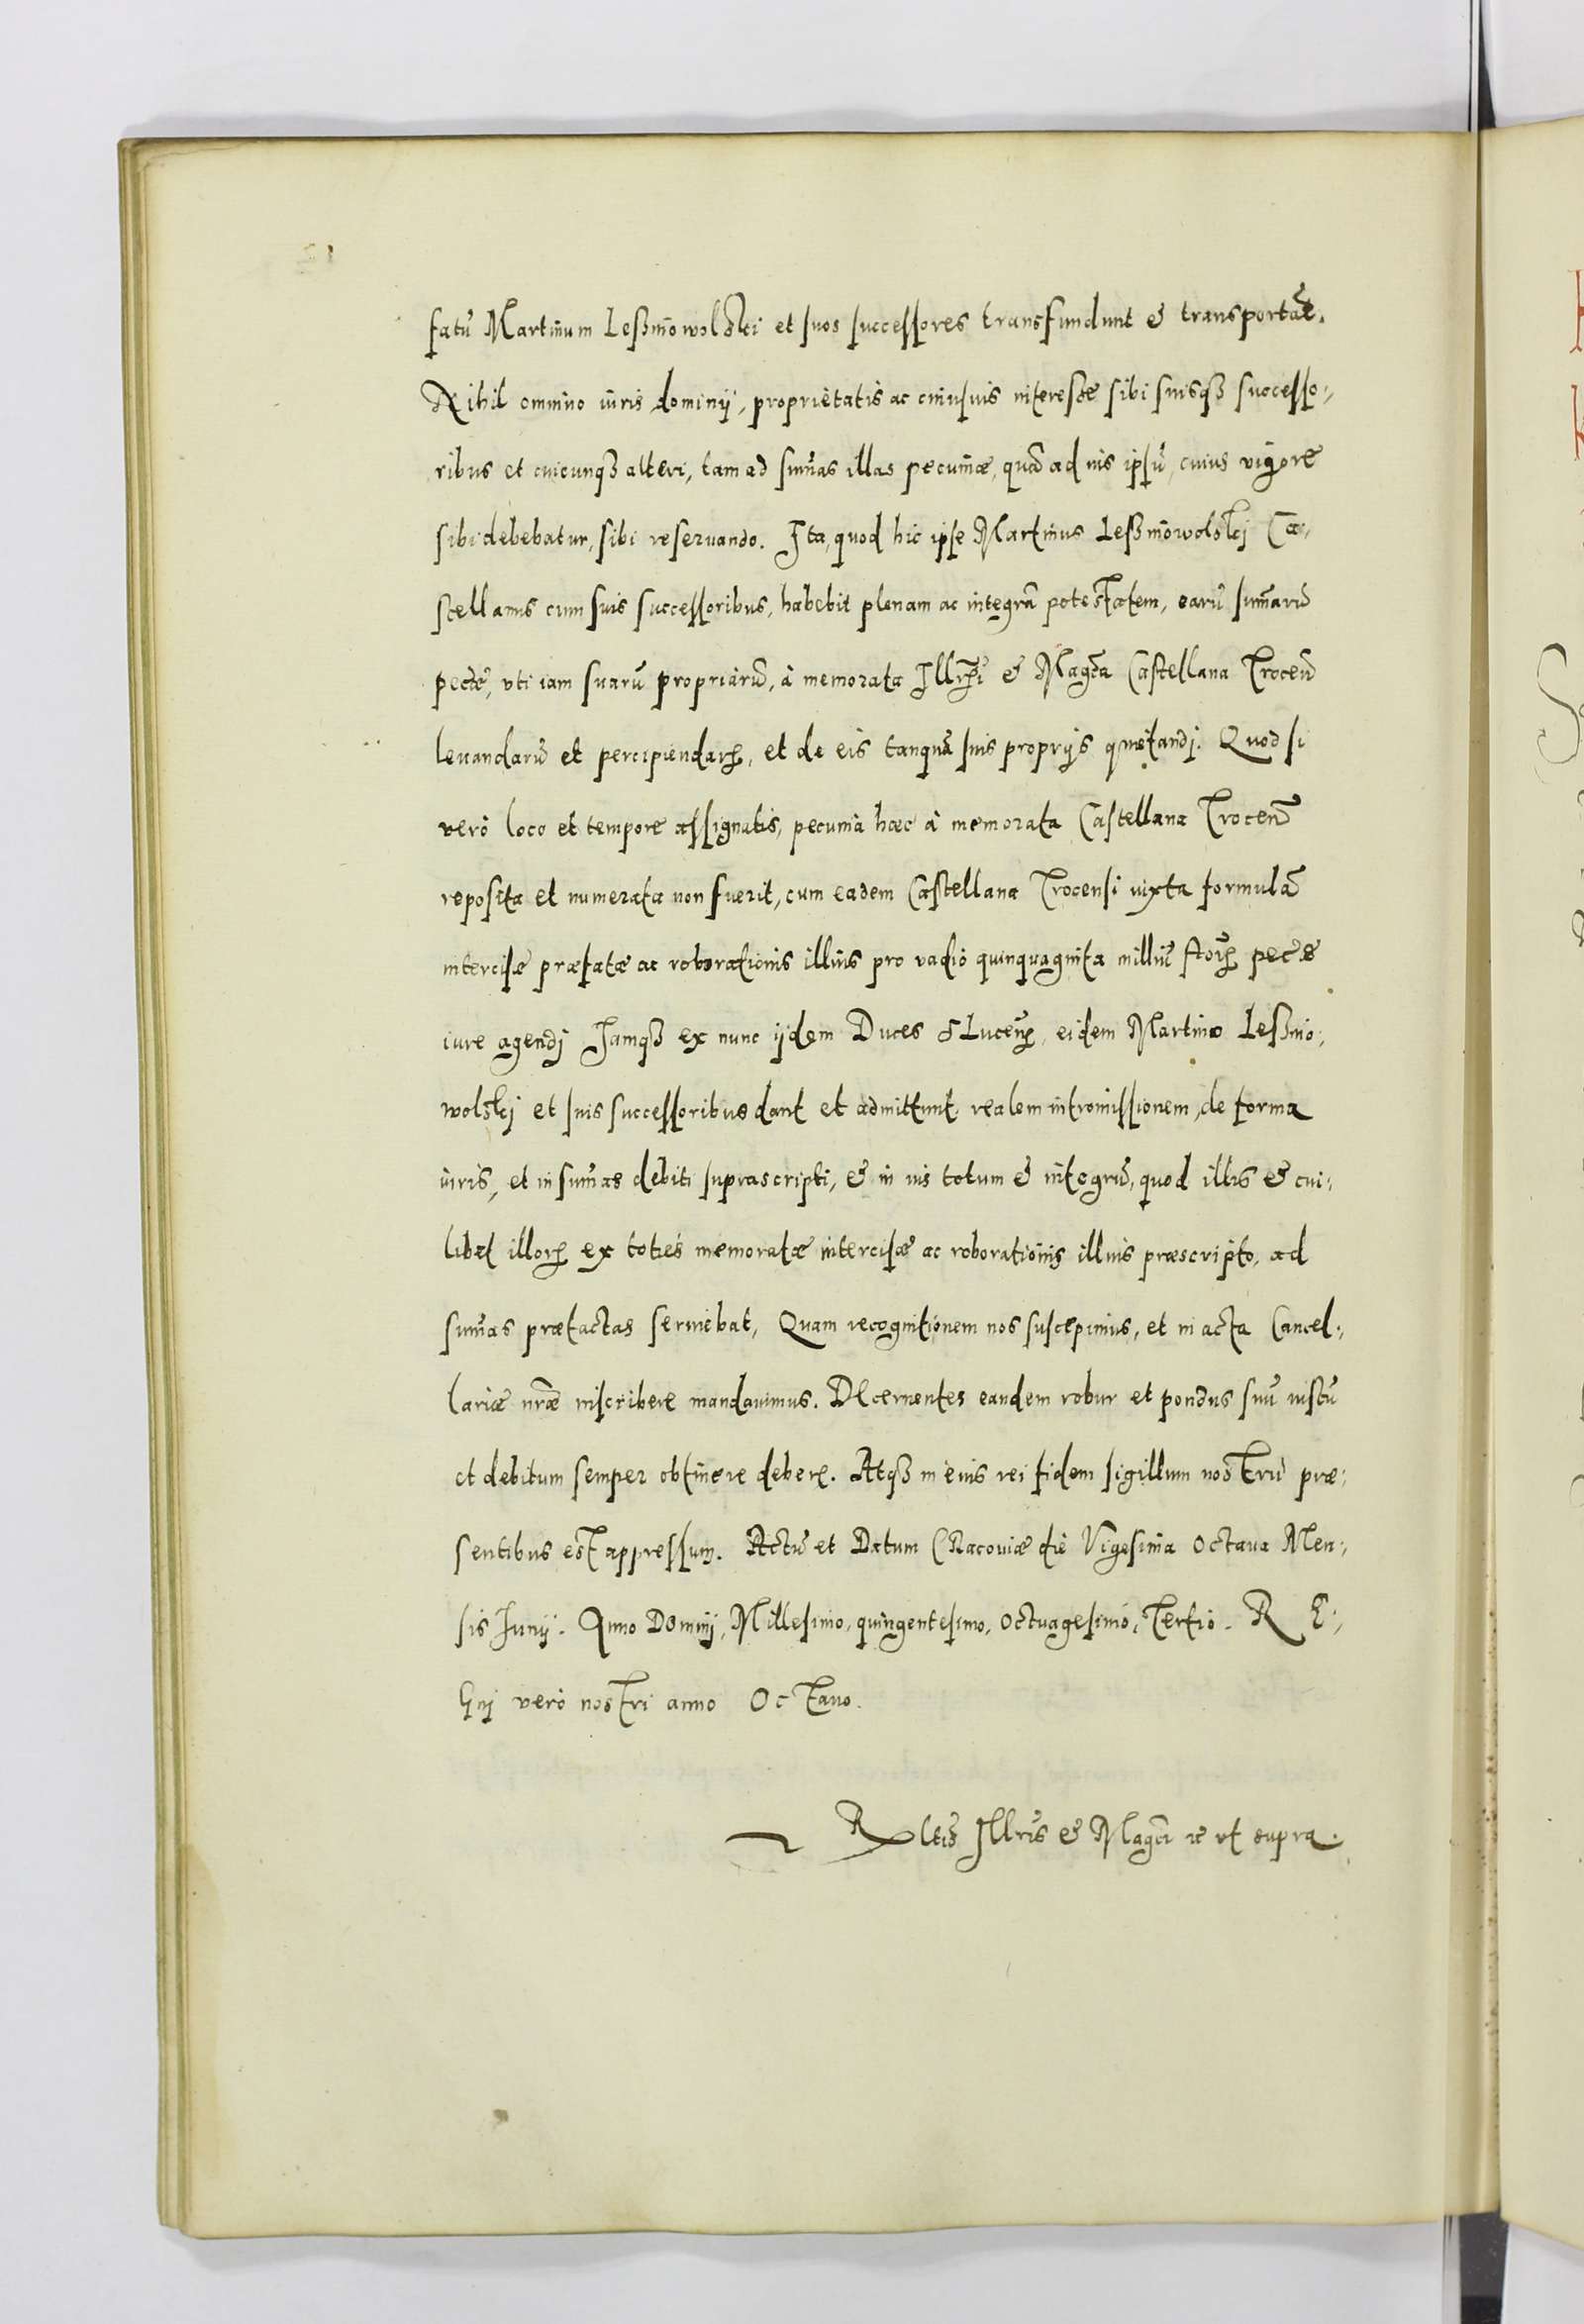 fatũ Martinum Leßniowolski et suos successores transfundunt & transportãt.
Nihil omnino iuris dominij, proprietatis ac cuiusuis interesse sibi suisqȝ successo:
ribus et cuicunqȝ alteri, tam ad sum̃as illas pecuniæ, quã ad ius ipsũ, cuius vigore
sibi debebatur, sibi reseruando. Ita, quod hic ipse Martinus Leßniowolskj Ca:
stellanus cum suis successoribus, habebit plenam ac integrã potestatem, earũ sum̃arũ
pecũe, vti iam suarũ propriarũ, à memorata Illr̃i & Mag̃ca Castellana Trocen̄
leuandarũ et percipiendarꝝ, et de eis tanquã suis proprijs quietandj. Quod si
verò loco et tempore assignatis, pecunia hæc à memorata Castellana Trocen̄
reposita et numerata non fuerit, cum eadem Castellana Trocensi iuxta formulã
intercisæ præfatæ ac roborationis illius pro vadio quinquaginta milliũ florꝝ pec̃æ
iure agendj Iamqȝ ex nunc ijdem Duces Sluceñ, eidem Martino Leßnio:
wolskj et suis successoribus dant et admittunt realem intromissionem, de forma
iuris, et in sum̃as debiti suprascripti, & in ius totum & integrũ, quod illis & cui:
libet illorꝝ ex toties memoratæ intercisæ ac roborationis illius præscripto, ad
sum̃as prætactas seruiebat, Quam recognitionem nos suscepimus, et in acta Cancel:
lariæ nr̃æ inscribere mandauimus. Decernentes eandem robur et pondus suũ iustũ
et debitum semper obtinere debere. Atqȝ in eius rei fidem sigillum nostrũ præ:
sentibus est appressum. Actũ et Datum Cracouiæ die Vigesima Octaua Men:
sis Iunij. Anno Dominj, Millesimo, quingentesimo, Octuagesimo, Tertio. R E:
Gnj verò nostri anno Octauo.
Rltio Illr̃is & Mag̃ci ꝛc vt supra.